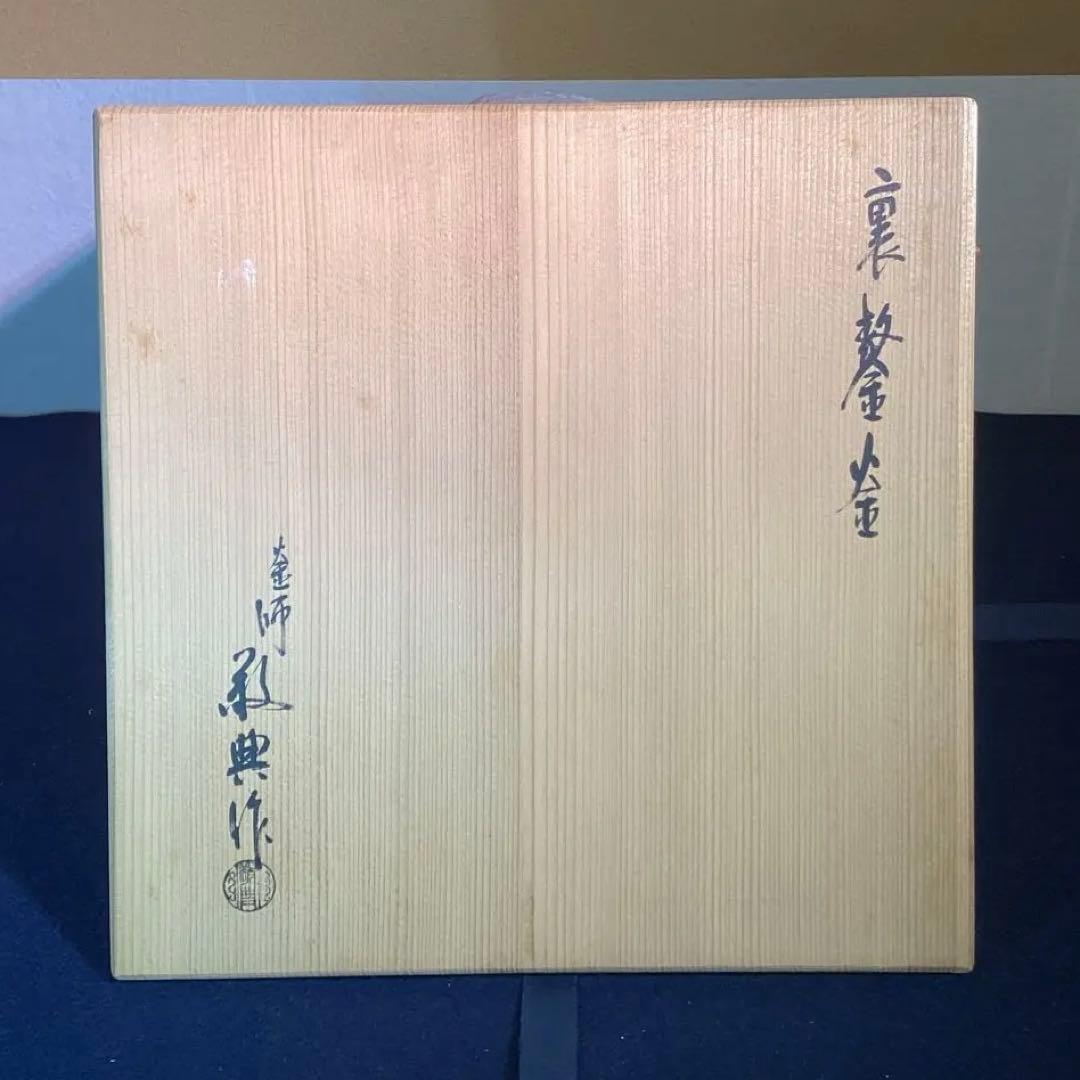 裏鏊釜
釜師 敬典作